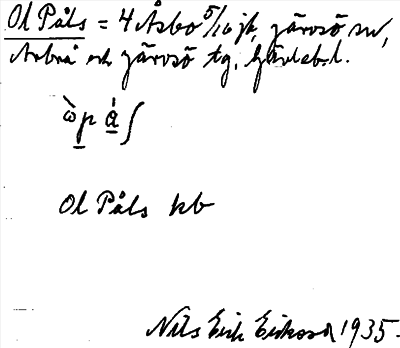 Ol Påls = 4 Åsbo 5/16 jb, Järvsö sn,
Arbrå och Järvsö tg. Gävleb. l.
Ol Påls kb
Nils Erik Eriksson 1935.